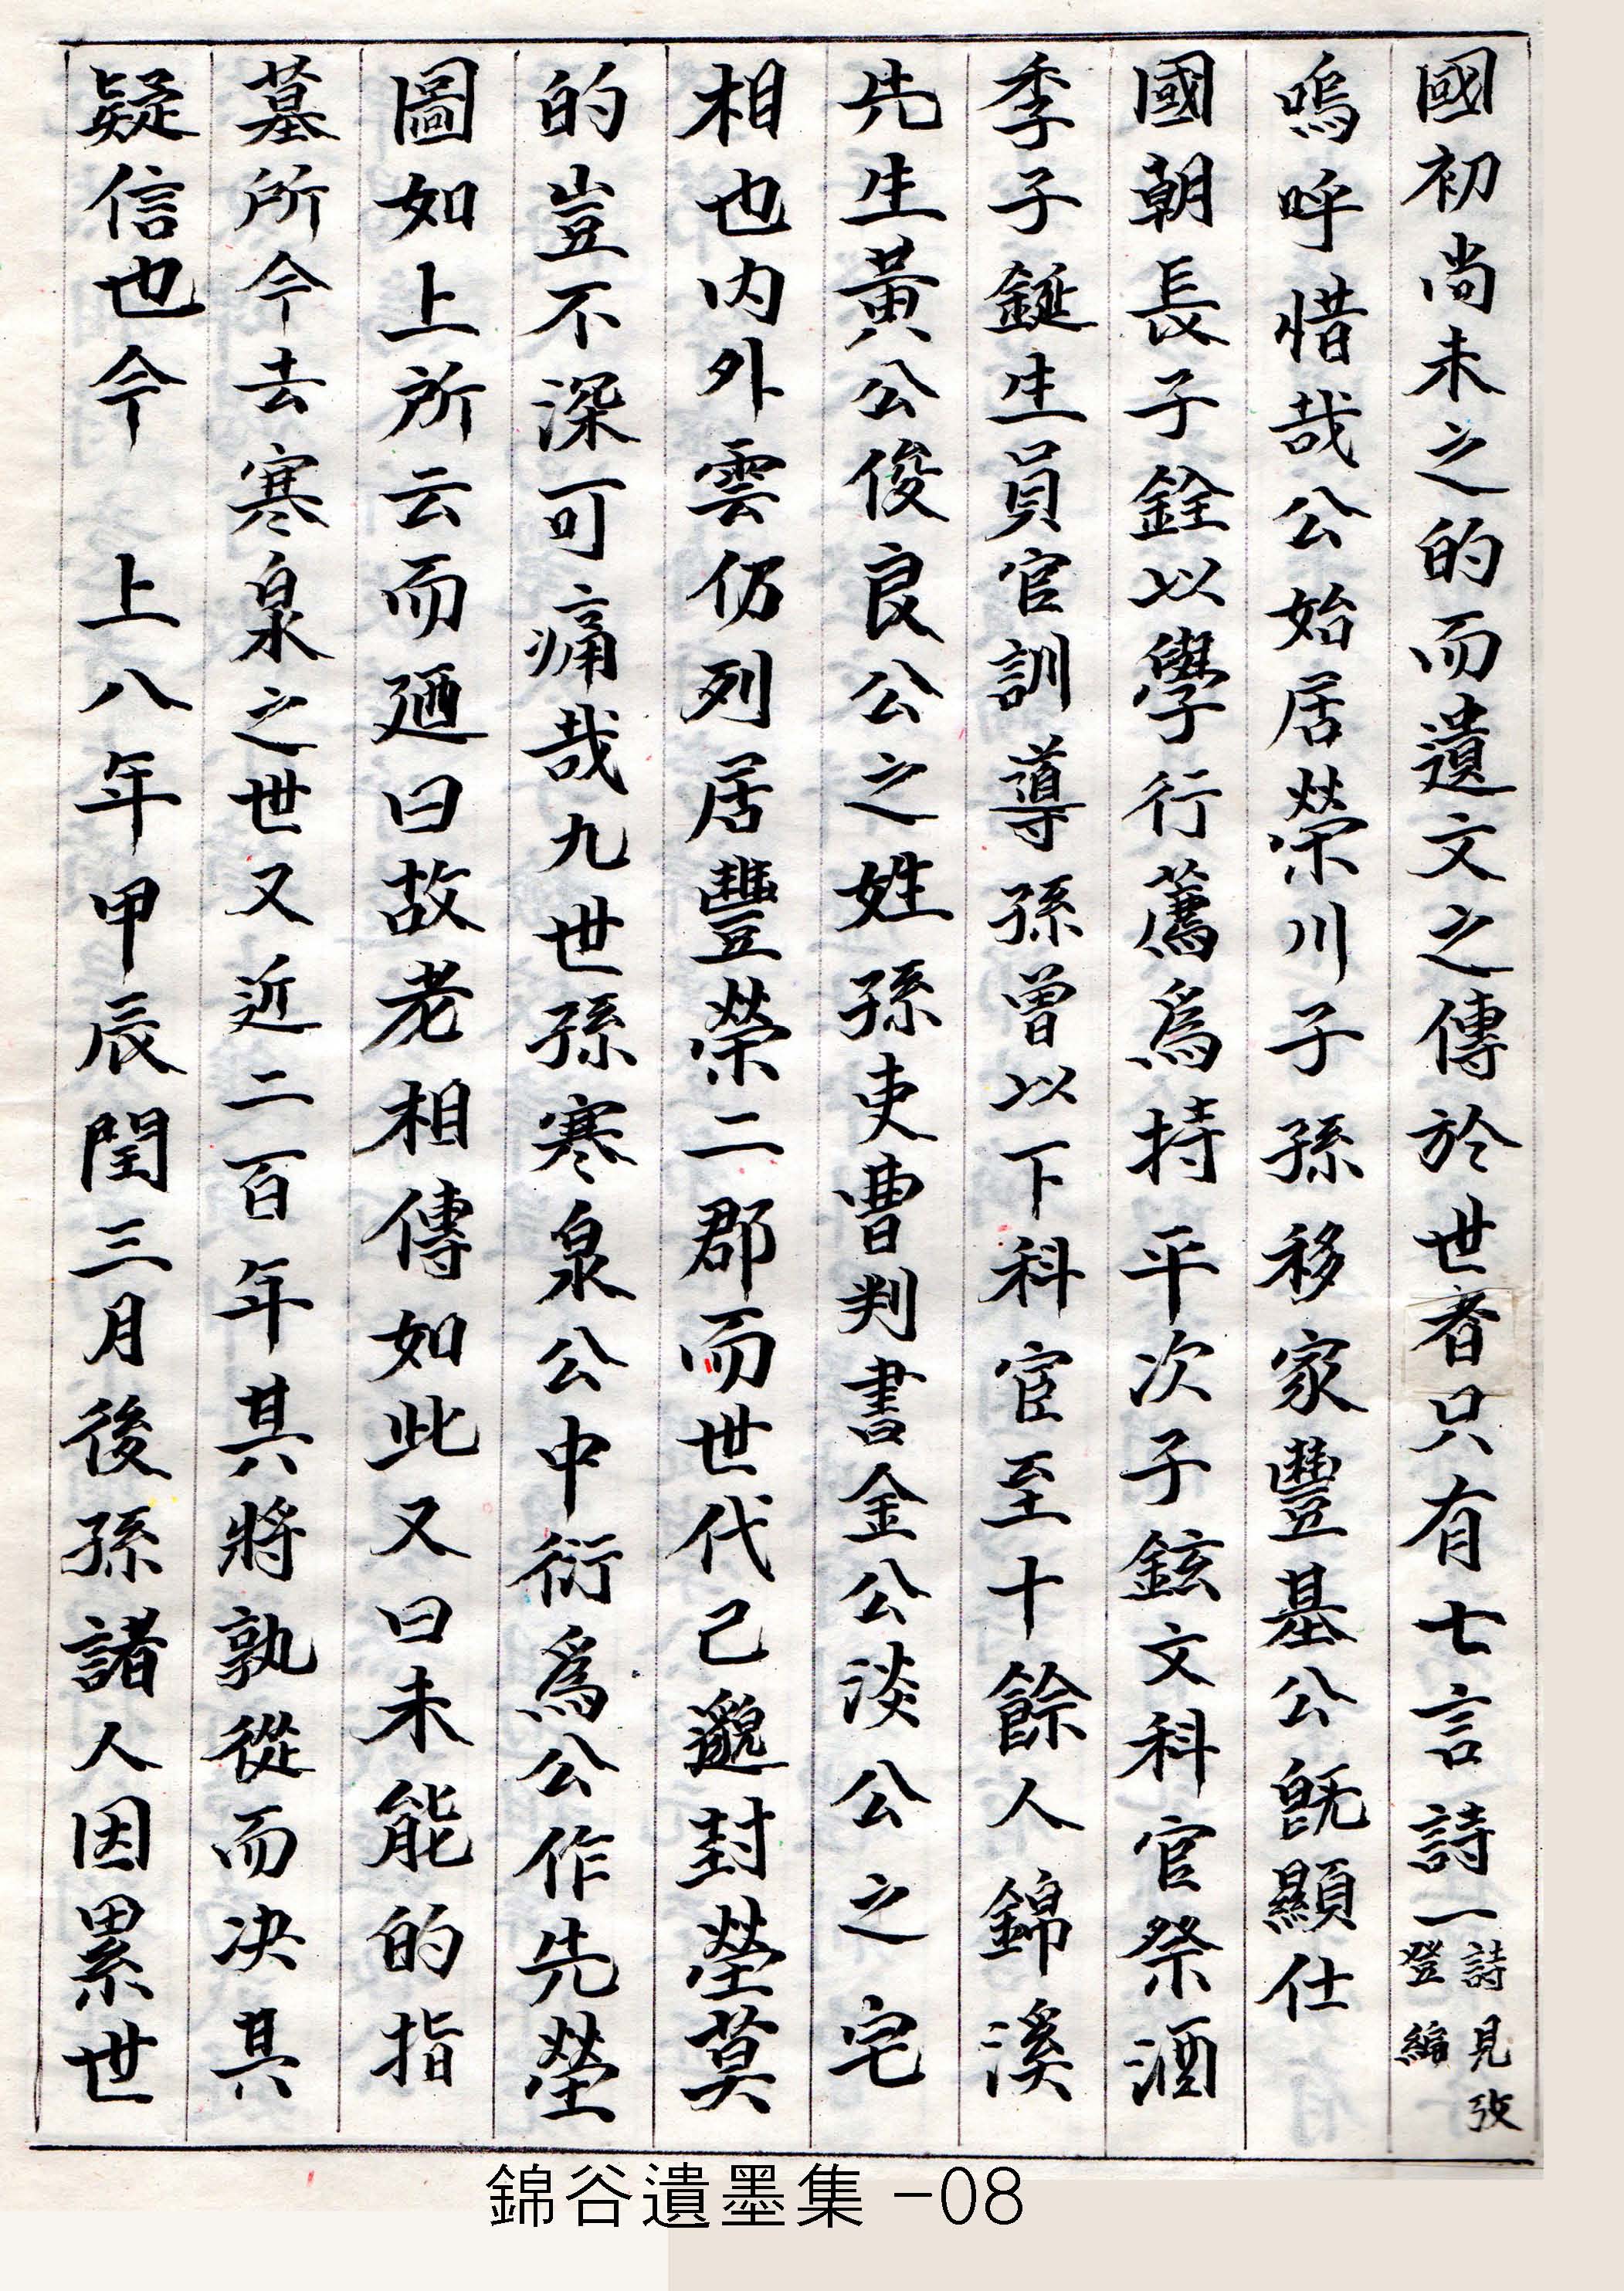 國初尚未之的而遺文之傳於世者只有七言詩一詩見攷登編
嗚呼惜哉公始居榮川子孫移家豐基公旣顯仕
國朝長子銓以學行薦爲持平次子鉉文科官祭酒
季子鋋生員官訓導孫曾以下科宦至十餘人錦溪
先生黃公俊良公之姓孫吏曹判書金公淡公之宅
相也内外雲仍列居豐榮二郡而世代己邈封塋莫
的豈不深可痛哉九世孫寒泉公中衍爲公作先塋
圖如上所云而廼曰故老相傳如此又曰未能的指
墓所今去寒泉之世又近二百年其將孰從而决其
疑信也今 上八年甲辰閏三月後孫諸人因累世
錦谷遺墨集 -08